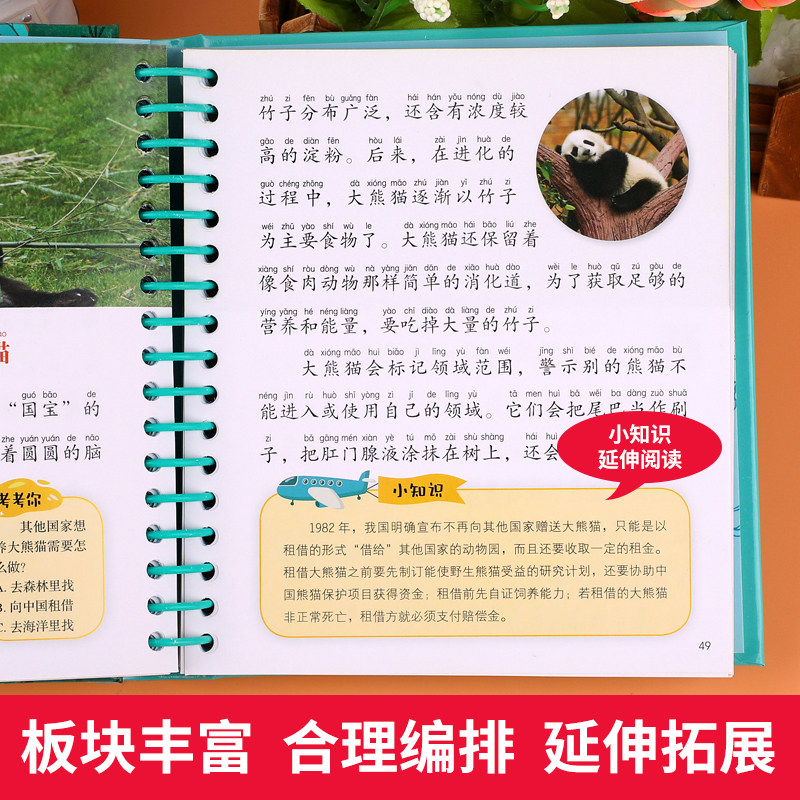 guó bǎo de
“国宝”的
zhe yuán yuán de nǎo
着圆圆的脑
考考你
其他国家想
养大熊猫需要怎
么做?
A. 去森林里找
B. 向中国租借
C. 去海洋里找
zhú zi fēn bù guǎng fàn hái hán yǒu nóng dù jiào
竹子分布广泛，还含有浓度较
gāo de diàn fěn hòu lái zài jìn huà de
高的淀粉。后来，在进化的
guò chéng zhōng dà xióng māo zhú jiàn yǐ zhú zi
过程中，大熊猫逐渐以竹子
wéi zhǔ yào shí wù le dà xióng māo hái bǎo liú zhe
为主要食物了。大熊猫还保留着
xiàng shí ròu dòng wù nà yàng jiǎn dān de xiāo huà dào wèi le huò qǔ zú gòu de
像食肉动物那样简单的消化道，为了获取足够的
yíng yǎng hé néng liàng yào chī diào dà liàng de zhú zi
营养和能量，要吃掉大量的竹子。
dà xióng māo huì biāo jì lǐng yù fàn wéi jǐng shì bié de xióng māo bù
大熊猫会标记领域范围，警示别的熊猫不
néng jìn rù huò shǐ yòng zì jǐ de lǐng yù tā men huì bǎ wěi ba dàng zuò shuā
能进入或使用自己的领域。它们会把尾巴当作刷
zi bǎ gāng mén xiàn yè tú mǒ zài shù shàng hái huì
子，把肛门腺液涂抹在树上，还会
小知识
延伸阅读
小知识
1982 年，我国明确宣布不再向其他国家赠送大熊猫，只能是以
租借的形式“借给”其他国家的动物园，而且还要收取一定的租金。
租借大熊猫之前要先制订能使野生熊猫受益的研究计划，还要协助中
国熊猫保护项目获得资金；租借前先自证饲养能力；若租借的大熊猫
非正常死亡，租借方就必须支付赔偿金。
49
板块丰富 合理编排 延伸拓展